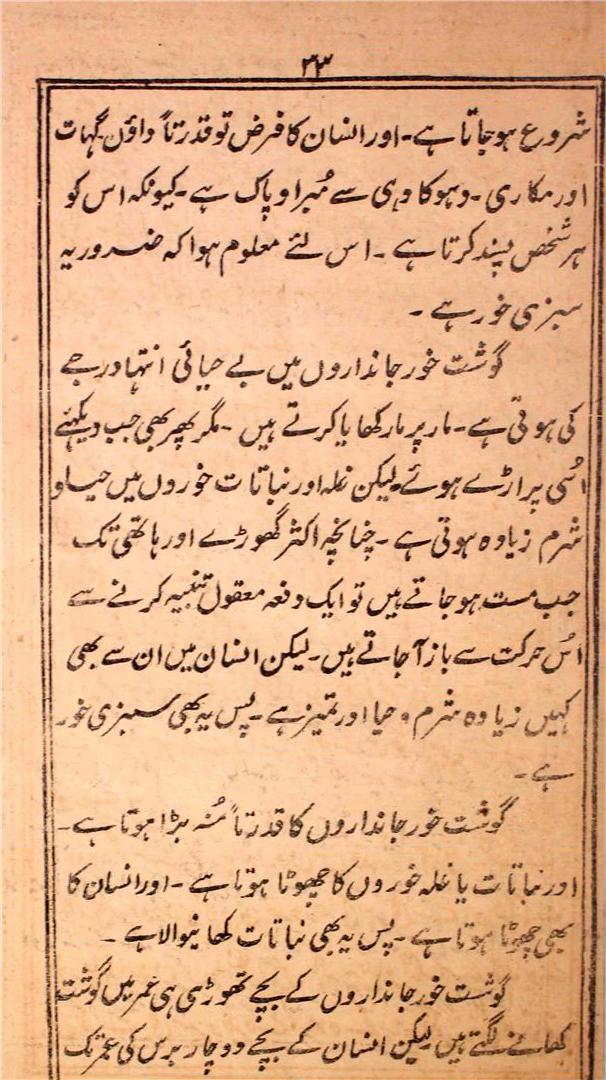 ۳۳
شروع ہوجاتا ہے۔اور انسان کا فرض تو قدرتاً داؤن گہات
اور مکاری ۔ دہوکا دہی سے مُبرا و پاک ہے ۔کیونکہ اس کو
ہر شخص پسند کرتا ہے ۔ اس لئے معلوم ہوا کہ ضرور یہ
سبزی خور ہے ۔
گوشت خور جانداروں میں بے حیائی انتہا درجے
کی ہوتی ہے۔مار پر مار کھایا کرتے ہیں ۔مگر پھر بھی جب دیکہئے
اُسی پر اڑے ہوئے۔لیکن غلہ اور نباتات خوروں میں حیا و
شرم زیادہ ہوتی ہے ۔ چنانچہ اکثر گھوڑے اور ہاتھی تک
جب مست ہو جاتے ہیں تو ایک دفعہ معقول تنبیہ کرنے سے
اُس حرکت سے باز آجاتے ہیں۔لیکن انسان میں ان سے بھی
کہیں زیادہ شرم و حیا اور تمیز ہے ۔پس یہ بھی سبزی خور
ہے ۔
گوشت خور جانداروں کا قدرتاً مُنہ بڑا ہوتا ہے۔
اور نباتات یا غلہ خوروں کا چھوٹا ہوتا ہے ۔اور انسان کا
بھی چھوٹا ہوتا ہے ۔پس یہ بھی نباتات کھانیوالا ہے ۔
گوشت خور جانداروں کے بچے تھوڑی ہی عمر میں گوشت
کھانے لگتے ہیں لیکن انسان کے بچے دو چار برس کی عمر تک